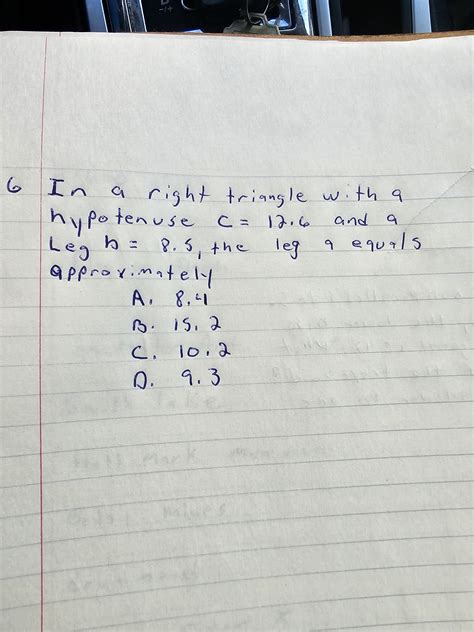 6 In a right triangle with a
hypotenuse c = 12.6 and a
Leg b = 8.5, the leg a equals
approximately
A. 8.4
B. 15.2
C. 10.2
D. 9.3